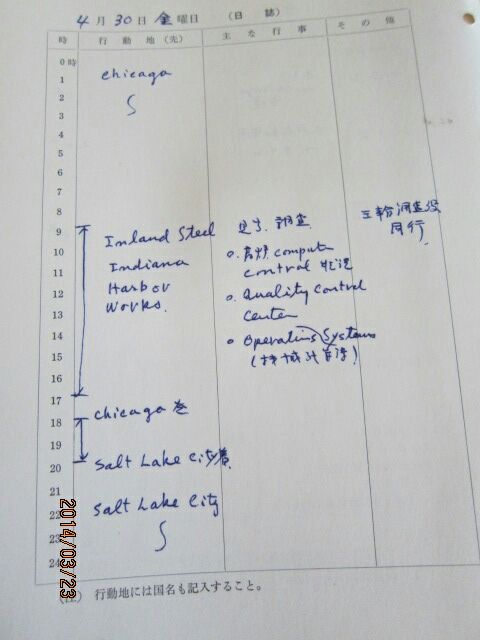 4月30日 金曜日 (日誌)
時 行動地(先) 主な行事 その他
0時
1 chicago
2
3
4
5
6
7
8
9 Inland Steel 見学、調査 三輪調査役
10 Indiana o. 高炉 computer 同行
11 Harbor control 状況
12 Works. o. Quality Control
13 center
14 o Operations Systems
15
16
17 chicago 発
18
19
20 Salt Lake City 着
21
22 Salt Lake City
23
24
(注) 行動地には国名も記入すること。
2014/03/23